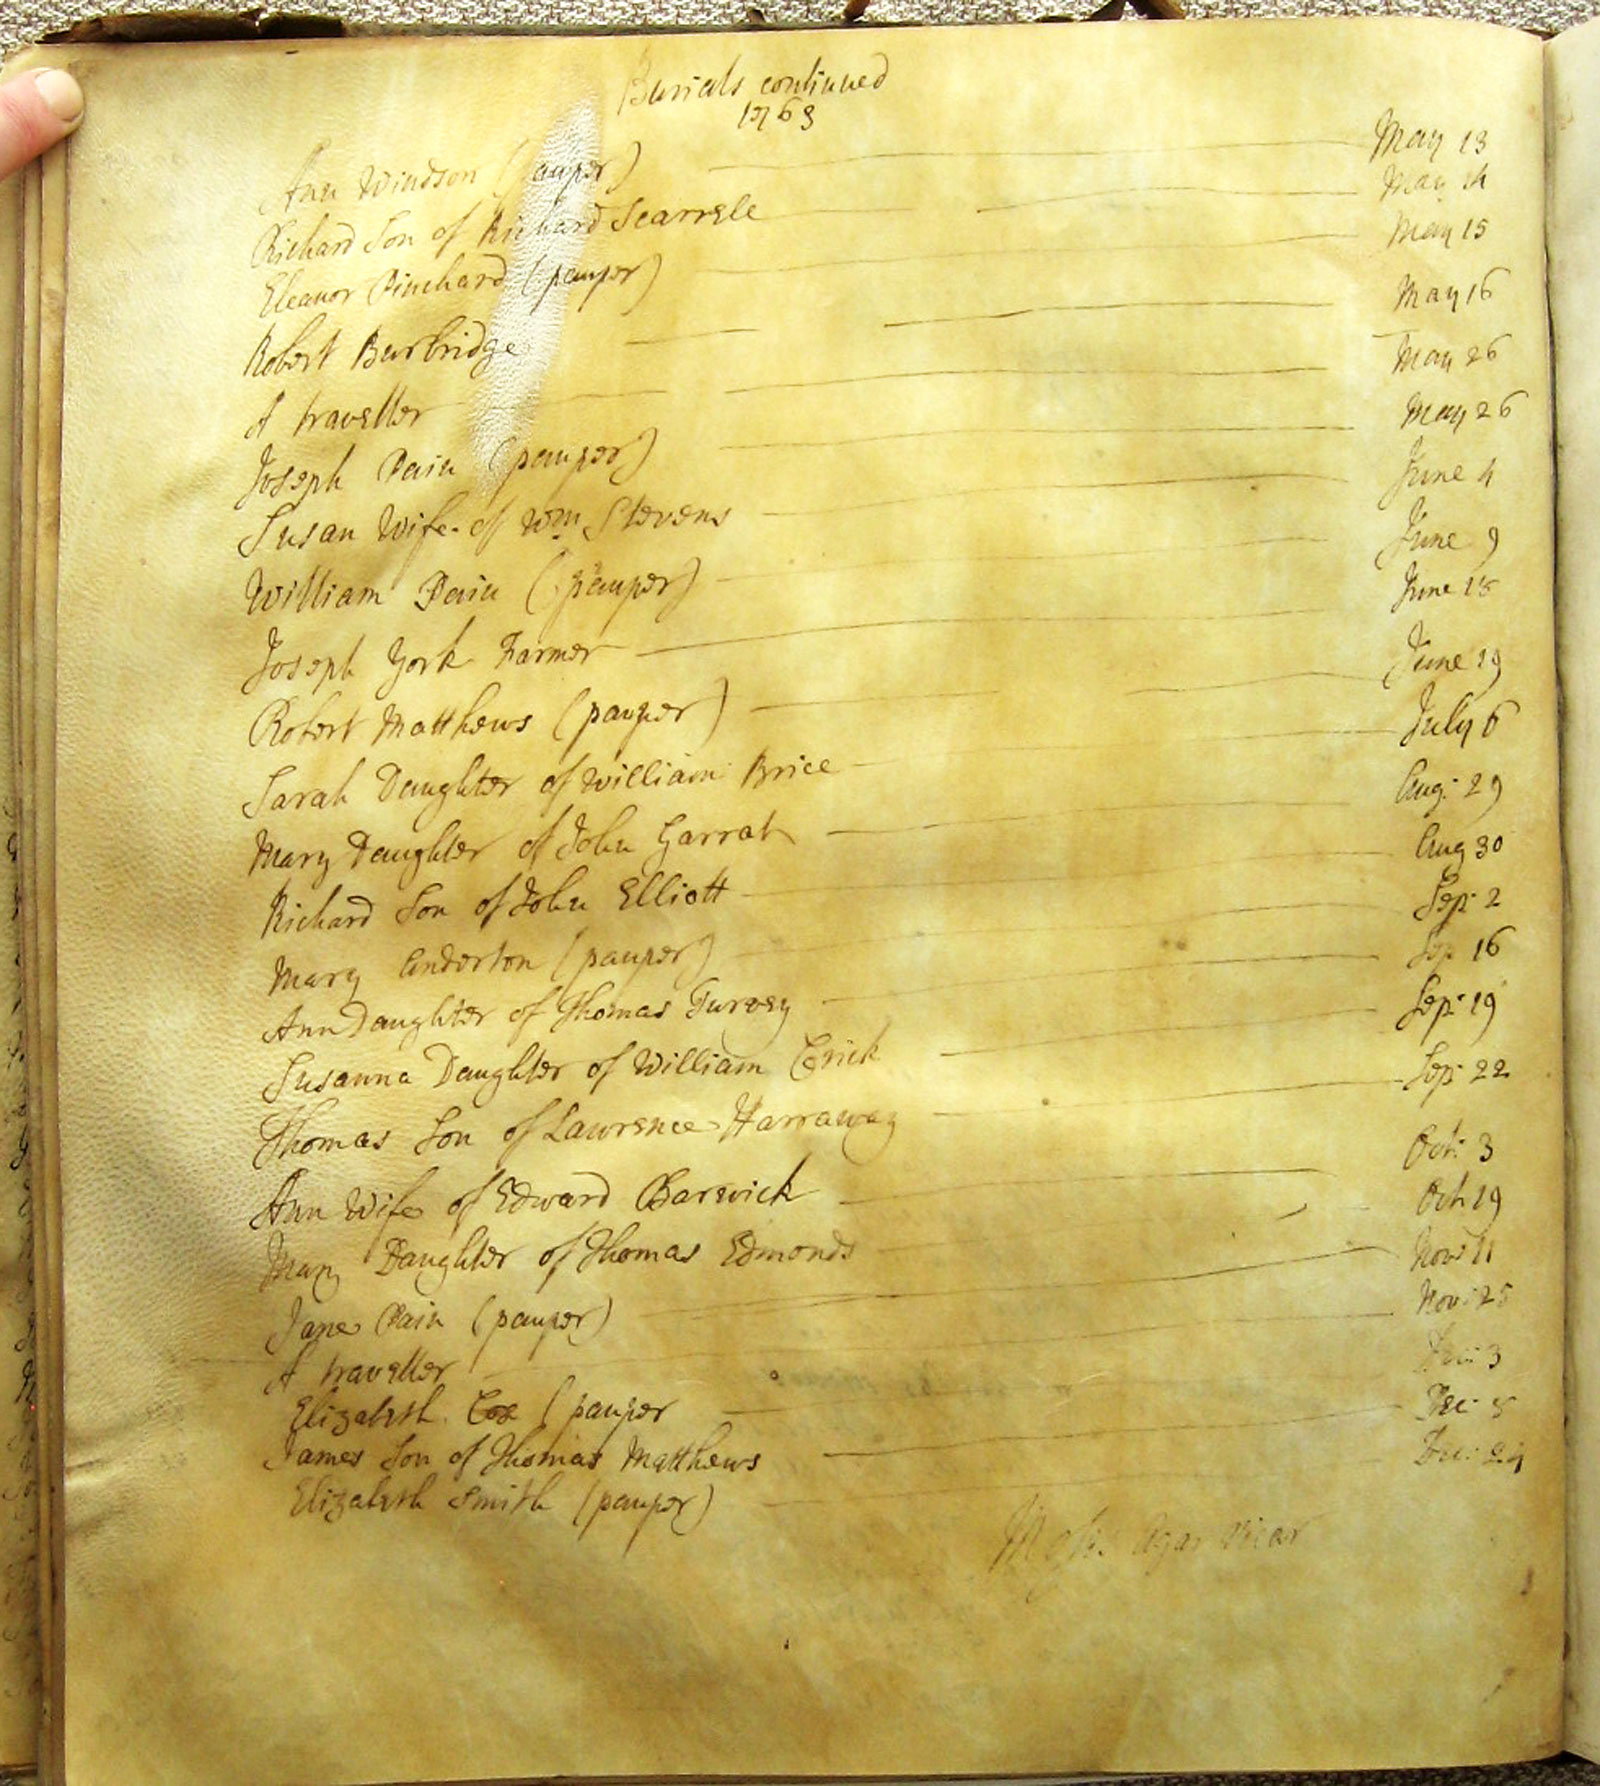 Burials continued
1763
Ann Windson (pauper) May 13
Richard Son of Richard Scarrele May 14
Eleanor Pinchard (pauper) May 15
Robert Burbridge May 16
A traveller May 26
Joseph Pain (pauper) May 26
Susan Wife of Wm Stevens June 4
William Pain (pauper) June 9
Joseph York Farmer June 15
Robert Matthews (pauper) June 19
Sarah Daughter of William Brice July 6
Mary Daughter of John Garrat Aug: 29
Richard Son of John Elliott Aug 30
Mary Anderton (pauper) Sep: 2
Ann Daughter of Thomas Turvey Sep 16
Susanna Daughter of William Sep: 19
Thomas Son of Lawrence Harraway Sep: 22
Ann Wife of Edward Barwick Oct: 3
Mary Daughter of Thomas Edmonds Oct: 19
Jane Pain (pauper) Nov: 11
A traveller Nov: 25
Elizabeth Cox (pauper Dec: 3
James Son of Thomas Matthews Dec: 8
Elizabeth Smith (pauper) Dec: 24
Agar Vicar